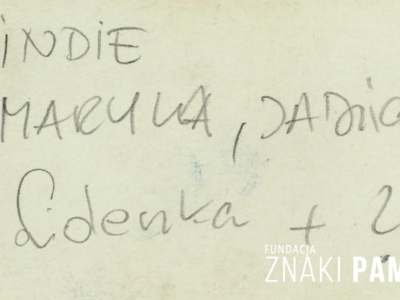 INDIE
MARYLA, JADŹIG
Lidenka + 2
FUNDACJA
ZNAKI PAM